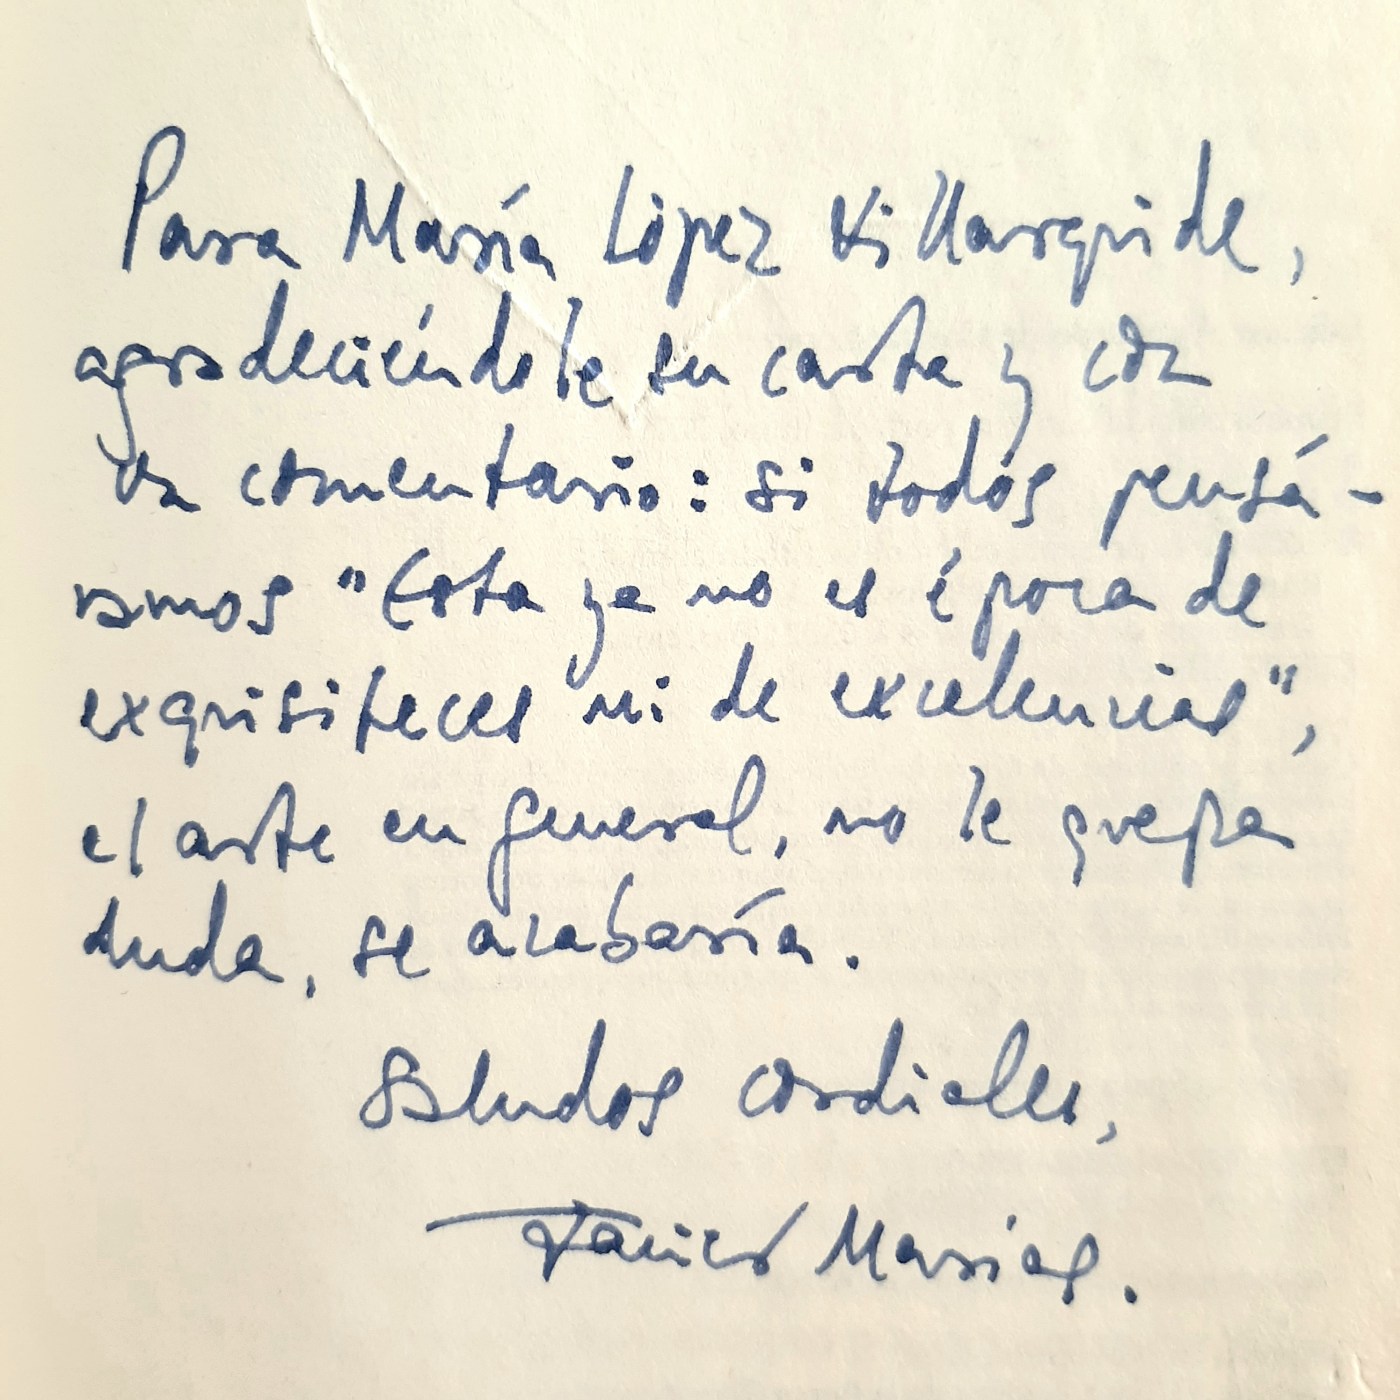 Para María López Villarquide,
agradeciéndole su carta y con
un comentario: si todos pensá-
ramos "Esta ya no es época de
exquisiteces ni de excelencias",
el arte en general, no le quepa
duda, se acabaría.
Saludos cordiales,
Javier Marías.